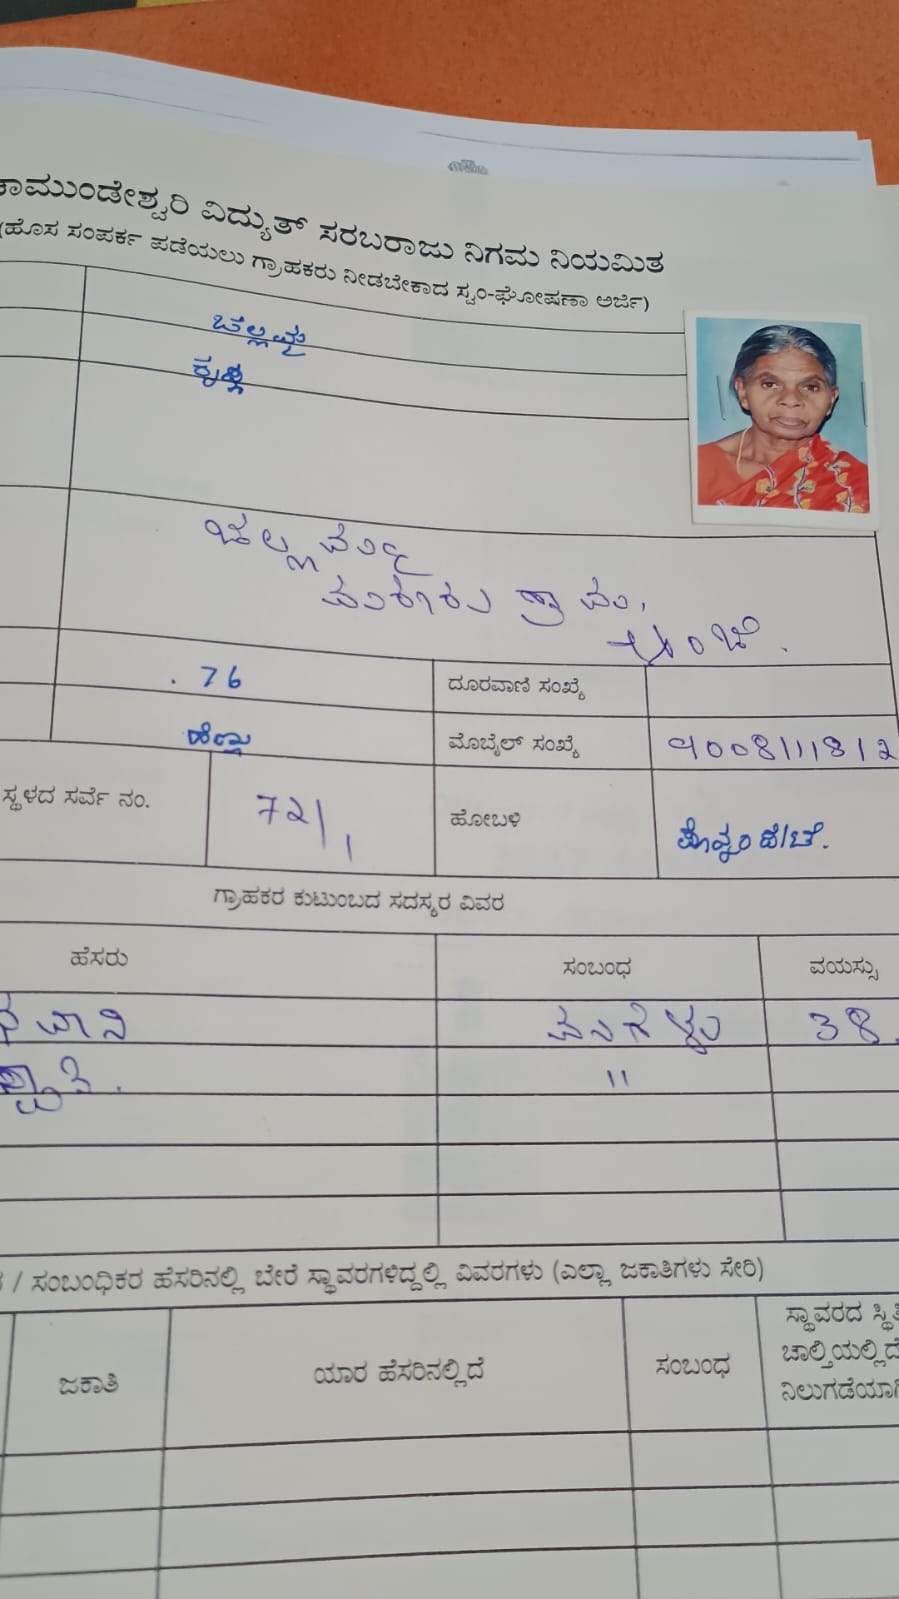 ಚಾಮುಂಡೇಶ್ವರಿ ವಿದ್ಯುತ್ ಸರಬರಾಜು ನಿಗಮ ನಿಯಮಿತ
(ಹೊಸ ಸಂಪರ್ಕ ಪಡೆಯಲು ಗ್ರಾಹಕರು ನೀಡಬೇಕಾದ ಸ್ವಂ-ಘೋಷಣಾ ಅರ್ಜಿ)
ಚೆಲ್ಲಮ್ಮ
76 ದೂರವಾಣಿ ಸಂಖ್ಯೆ
ಹೆಣ್ಣು ಮೊಬೈಲ್ ಸಂಖ್ಯೆ 9008111812
ಸ್ಥಳದ ಸರ್ವೆ ನಂ. 72/1 ಹೋಬಳಿ
ಗ್ರಾಹಕರ ಕುಟುಂಬದ ಸದಸ್ಯರ ವಿವರ
ಹೆಸರು ಸಂಬಂಧ ವಯಸ್ಸು
ಮಗಳು 38
"
/ ಸಂಬಂಧಿಕರ ಹೆಸರಿನಲ್ಲಿ ಬೇರೆ ಸ್ಥಾವರಗಳಿದ್ದಲ್ಲಿ ವಿವರಗಳು (ಎಲ್ಲಾ ಜಕಾತಿಗಳು ಸೇರಿ)
ಜಕಾತಿ ಯಾರ ಹೆಸರಿನಲ್ಲಿದೆ ಸಂಬಂಧ ಸ್ಥಾವರದ ಸ್ಥಿತಿ
ಚಾಲ್ತಿಯಲ್ಲಿದೆ
ನಿಲುಗಡೆಯಾಗಿ